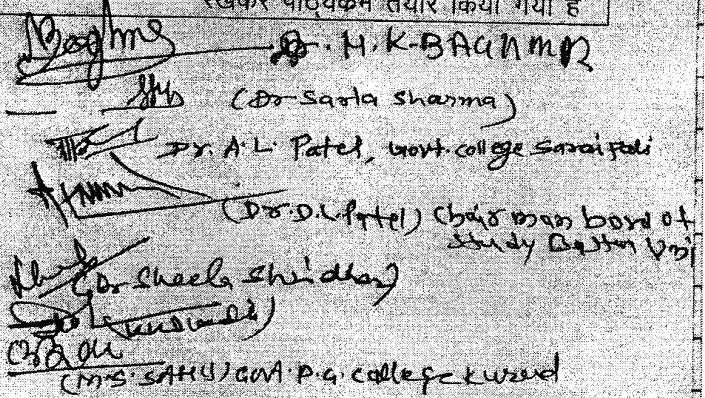 रखकर पाठ्यक्रम तैयार किया गया है
Dr. H.K-BAGHMAR
(Dr Sarla Sharma)
Dr. A.L. Patel, Govt. college Saraipali
(Dr. D.L. Patel) Chairman board of
Study Bastar Uni
(Dr Sheela Shridhar)
(M.S. SAHU) Govt. P.G. college Kurud